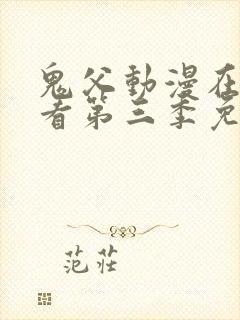 鬼父動漫在
看第三季免
范莊